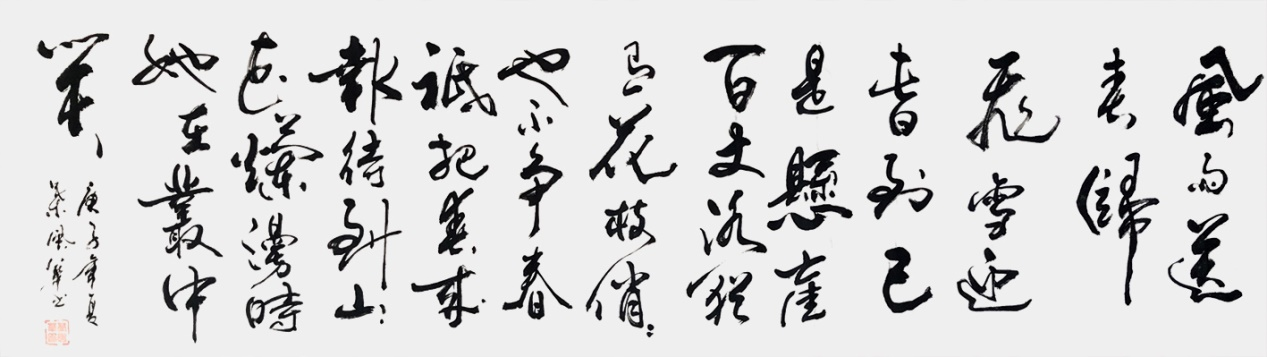 風雨送
春歸
飛雪迎
春到已
是懸崖
百丈冰猶
有花枝俏:
也不争春
祇把春來
報待到山:
花爛漫時
她在叢中
笑
庚子年夏
葉風书